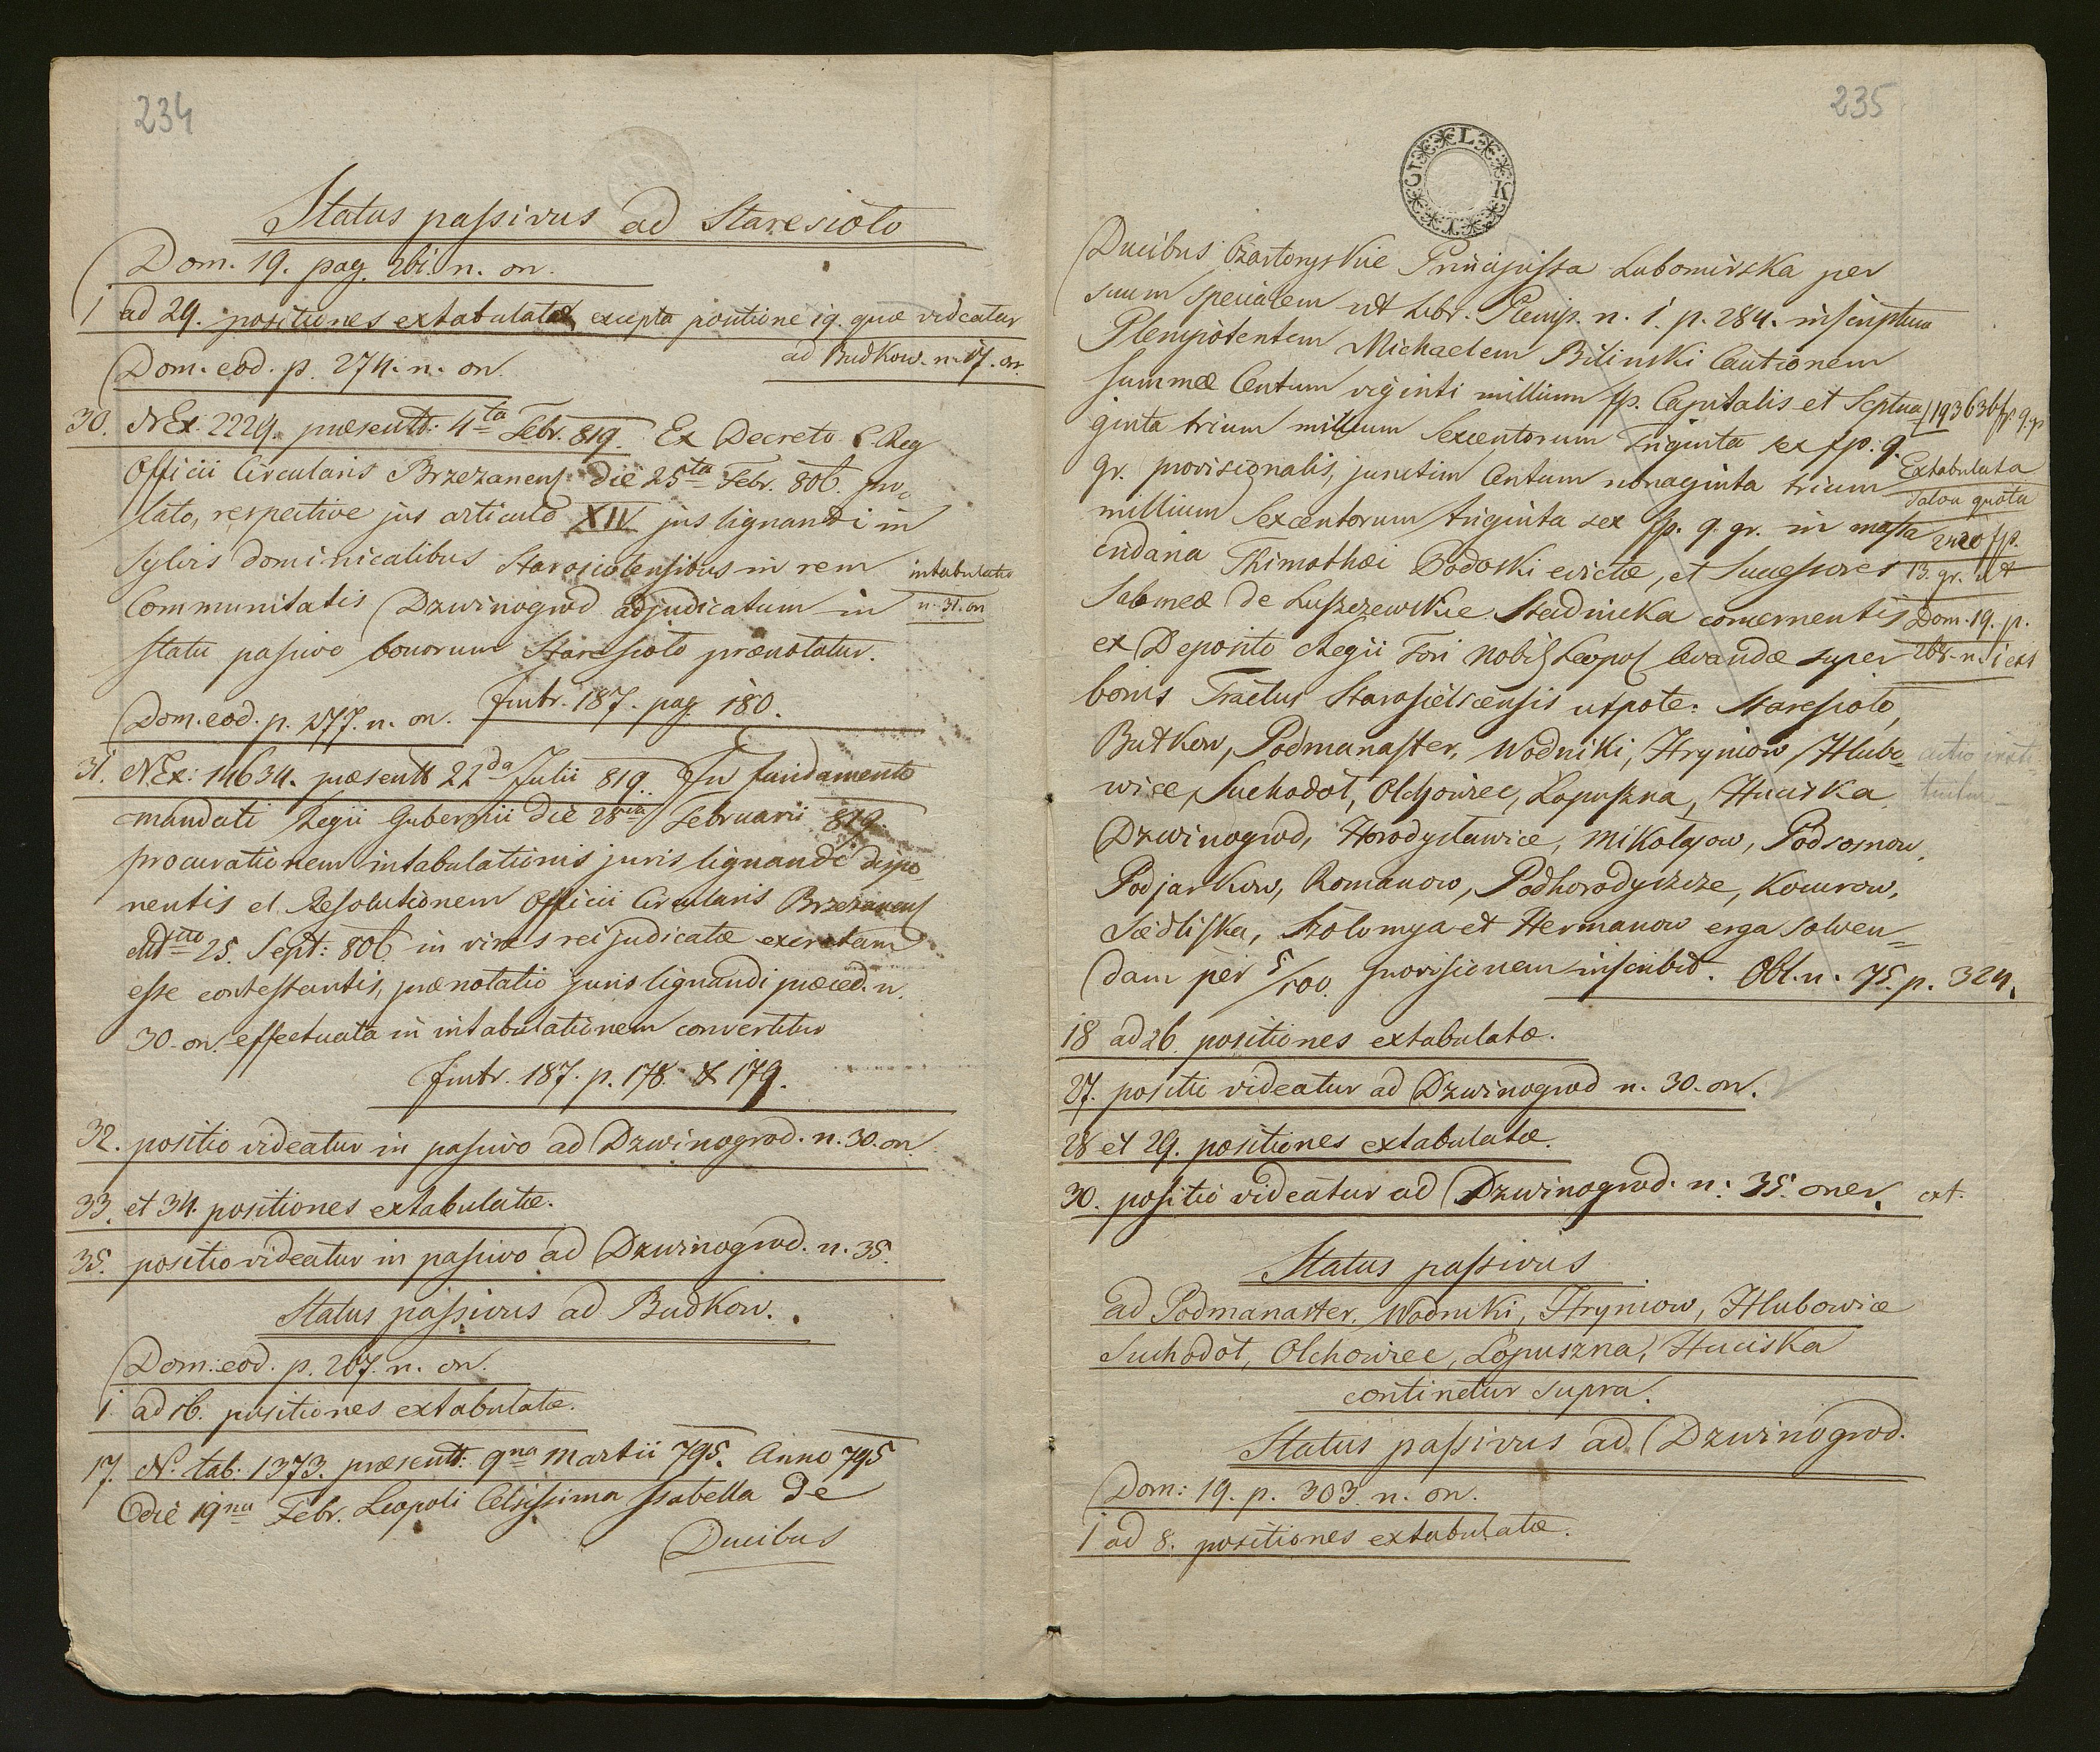 234
Status passivus ad Staresioło
Dom. 19. pag. 261. n. on.
1 ad 29. positiones extabulatæ excepta positione 19. quæ videatur
ad Budkow. n. 17. on.
Dom. eod. p. 274. n. on.
30. NEx: 2229. præsentt: 4ta Febr. 819. Ex Decreto C. Reg
Officii Circularis Brzezanens: die 25ta Febr. 806. pro-
lato, respective jus articulo XIV jus lignandi in
sylvis dominicalibus Starosiolensibus in rem
Communitatis Dzwinogrod adjudicatum in
statu passivo bonorum Staresioło prænotatur.
intabulatio
n. 31. on
Instr. 187. pag. 180.
Dom. eod. p. 277. n. on.
31. NEx: 14634. præsentt 22da Julii 819. In fundamento
mandati Regii Gubernii die 28va Februarii 819.
procurationem intabulationis juris lignandi dispo-
nentis et Resolutionem Officii Circularis Brzezanens
ddto 25. Sept: 806 in vires rei judicatæ excretam
esse contestantis, prænotatio juris lignandi præced. n.
30. on. effectuata in intabulationem convertitur
Instr. 187. p. 178. & 179.
32. positio videatur in passivo ad Dzwinogrod. n. 30. on.
33. et 34. positiones extabulatæ.
35. positio videatur in passivo ad Dzwinogrod. n. 35.
Status passivus ad Budkow.
Dom: eod. p. 267. n. on.
1 ad 16. positiones extabulatæ.
17. N. tab. 1373. præsentt: 9na Martii 795. Anno 795
die 19na Febr. Leopoli Celsissima Isabella de
Ducibus
235
L K T
Ducibus Czartoryskie Principissa Lubomirska per
suum specialem ut Libr. Plenip. n. 1. p. 284. inscriptum
Plenipotentem Michaelem Bilinski Cautionem
summæ Centum viginti millium fp. Capitalis et Septua-
ginta trium millium Sexcentorum Triginta sex fp. 9.
gr. provisionalis, junctim Centum nonaginta trium
millium Sexcentorum triginta sex fp. 9. gr. in massa
cridaria Thimothæi Podoski evictæ, et Successores
Salomeæ de Luszczewskie Stadnicka concernentis
ex Deposito Regii Fori Nobil Leopol levandæ super
bonis Tractus Starosielscensis utpote: Staresioło,
Budkow, Podmanaster, Wodniki, Hryniow, Hlubo-
wice, Suchodoł, Olchowiec, Łopuszna, Huciska
Dzwinogrod, Horodysławice, Mikołajow, Podsosnow,
Podjarkow, Romanow, Podhorodyszcze, Kocurow,
Siedliska, Kołomya et Hermanow erga solven-
dam per 5/100 provisionem inscribit. Obl. n. 75. p. 324.
193636 fp. 9. gr
Extabulata
salva quota
2220 fp.
13. gr. ut
Dom. 19. p.
268. n. 1 ext
18 ad 26. positiones extabulatæ.
27. positio videatur ad Dzwinogrod n. 30. on.
28 et 29. positiones extabulatæ.
30. positio videatur ad Dzwinogrod. n. 35. oner. ext.
Status passivus
ad Podmanaster. Wodniki, Hryniow, Hlubowice
Suchodoł, Olchowiec, Łopuszna, Huciska
continetur supra.
Status passivus ad Dzwinogrod.
Dom: 19. p. 303. n. on.
1 ad 8. positiones extabulatæ.